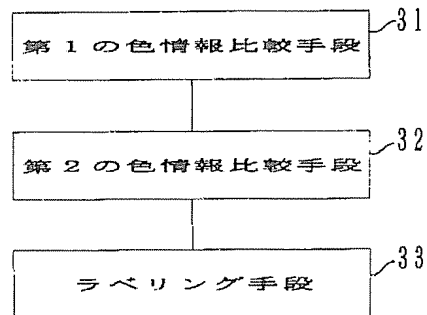 31
第1の色情報比較手段
32
第2の色情報比較手段
33
ラベリング手段